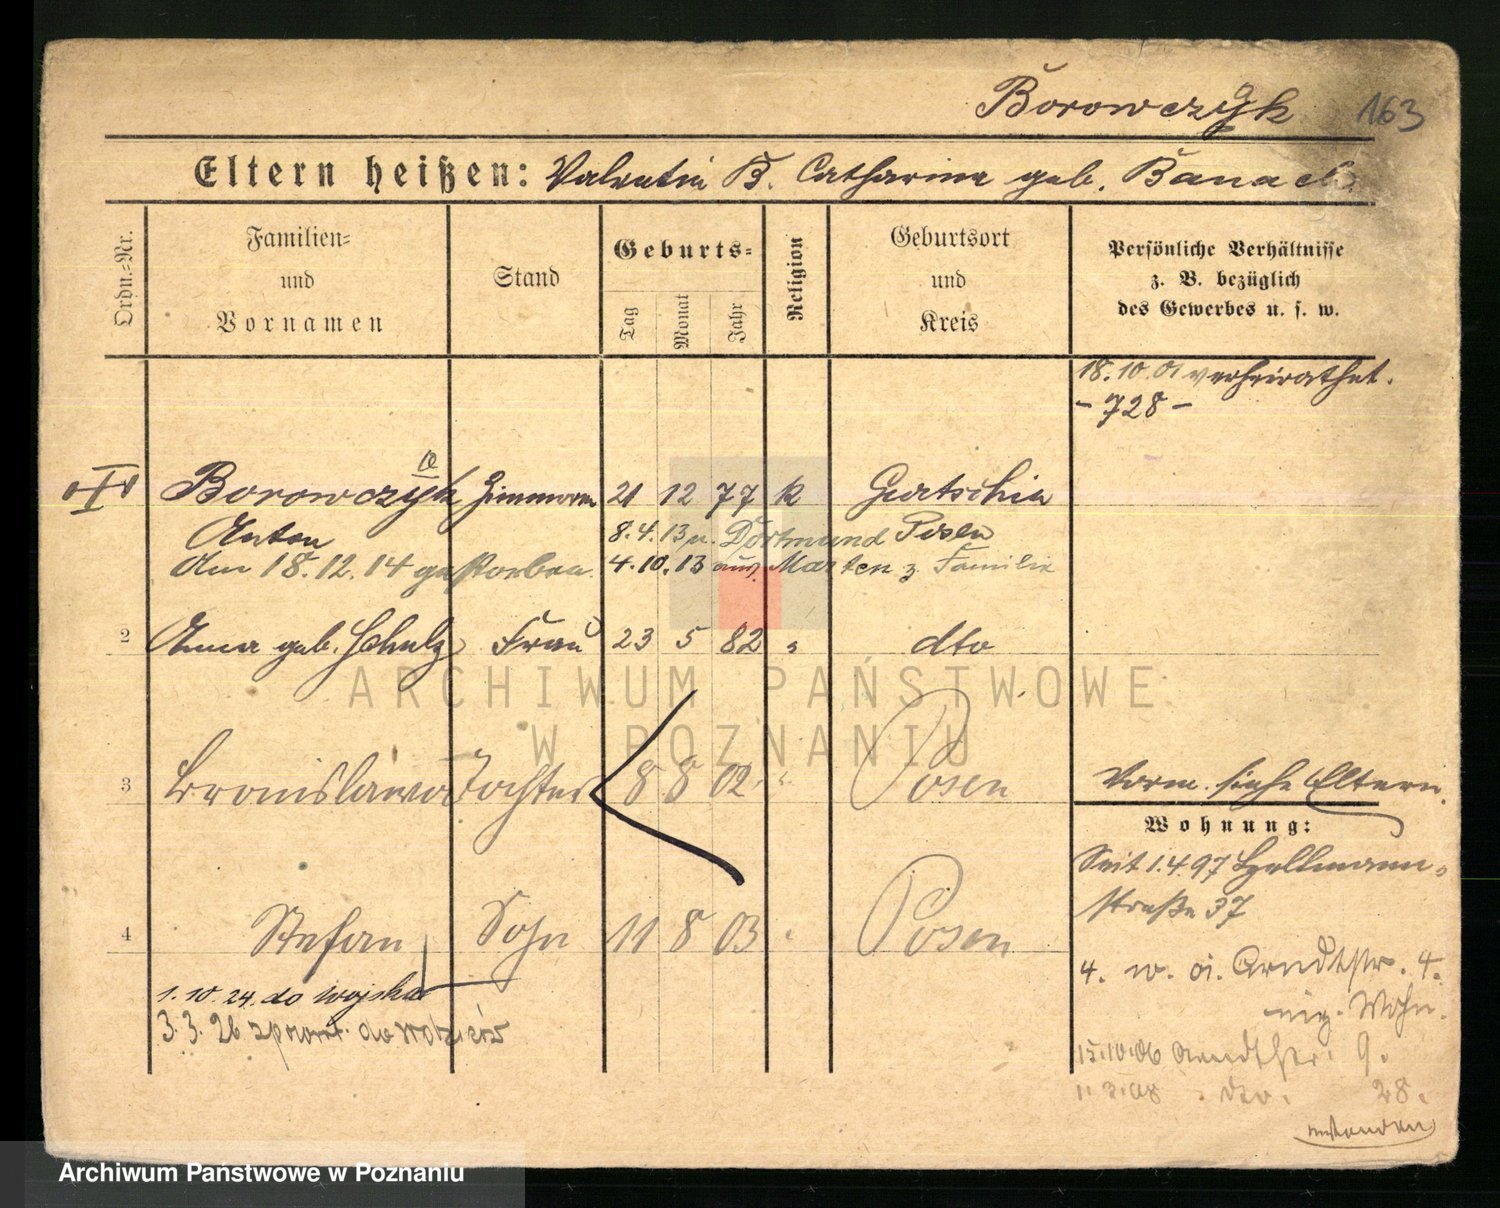 Borowczyk 163
Eltern heißen: Valentin B. Catharina geb. Banach
Ordn.-Nr.
Familien-
und
Vornamen
Stand
Geburts-
Tag
Monat
Jahr
Religion
Geburtsort
und
Kreis
Persönliche Verhältnisse
z. B. bezüglich
des Gewerbes u. s. w.
18.10.01 verheirathet.
- 728 -
Borowczyk Zimmerm 21 12 77 k Gurtschin
Anton 8.4.13 n. Dortmund Posen
Am 18.12.14 gestorben. 4.10.13 aus Marten z. Familie
2 Anna geb. Schulz Frau 23 5 82 " dto
3 Bronislawa Tochter 8 8 02 " Posen
Vorm. siehe Eltern.
Wohnung:
Seit 1.4.97 Hellmann-
straße 37
4 Stefan Sohn 11 8 03 " Posen
1.10.24. do wojska
3.3.26 z powr. do rodziców
4. w. oi. Arndtstr. 4.
eig. Wohn.
15.10.06 Arndtstr. 9.
1.3.08 . dto. 28.
ARCHIWUM PAŃSTWOWE
W POZNANIU
Archiwum Państwowe w Poznaniu